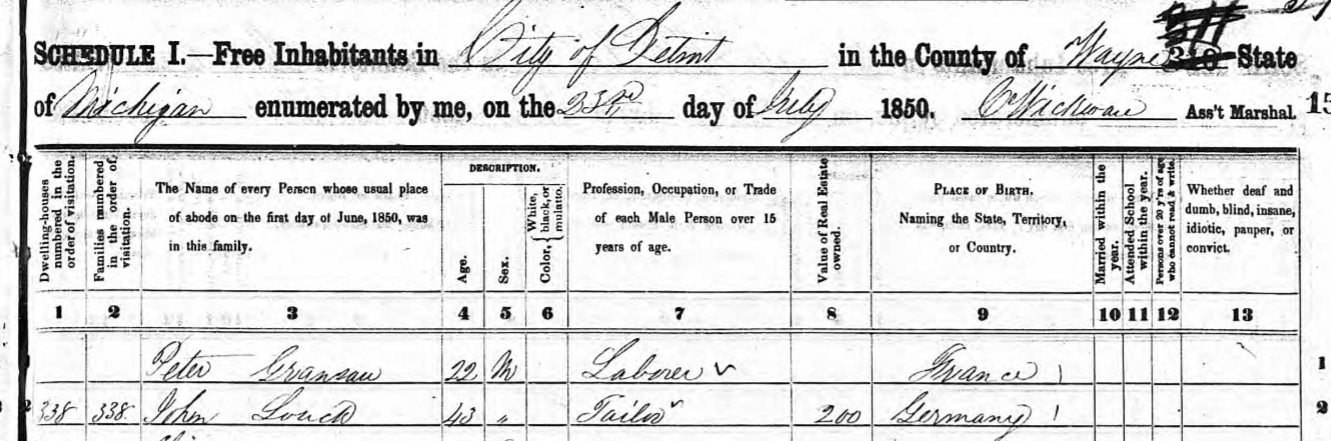 SCHEDULE I.—Free Inhabitants in City of Detroit in the County of Wayne State
of Michigan enumerated by me, on the 23rd day of July 1850. Ass't Marshal.
Dwelling-houses numbered in the order of visitation.
Families numbered in the order of visitation.
The Name of every Person whose usual place
of abode on the first day of June, 1850, was
in this family.
DESCRIPTION.
Age.
Sex.
Color, { White, black, or mulatto.
Profession, Occupation, or Trade
of each Male Person over 15
years of age.
Value of Real Estate owned.
PLACE OF BIRTH.
Naming the State, Territory,
or Country.
Married within the year.
Attended School within the year.
Persons over 20 y'rs of age who cannot read & write.
Whether deaf and
dumb, blind, insane,
idiotic, pauper, or
convict.
1 2 3 4 5 6 7 8 9 10 11 12 13
Peter 22 M Laborer France 1
2 338 338 John 43 " Tailor 200 Germany 2